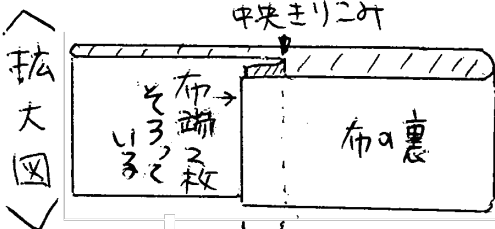 〈拡大図〉
中央きりこみ
布端2枚
そろって
いる
布の裏